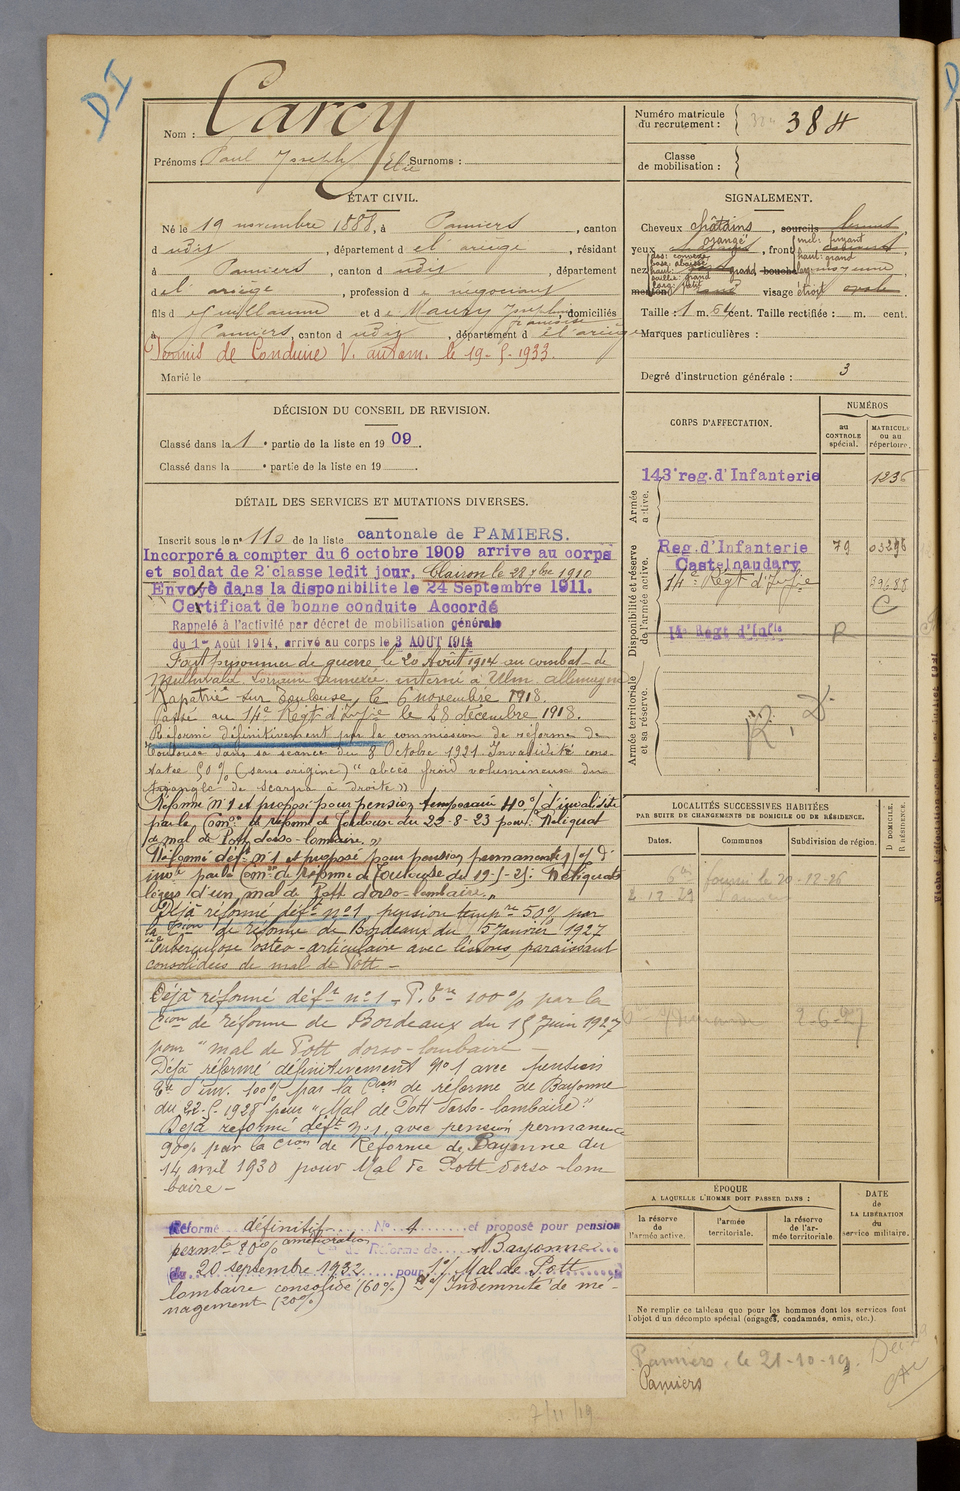 DI
Nom : Carcy
Prénoms : Paul Joseph Elie Surnoms :
Numéro matricule du recrutement : 384
Classe de mobilisation :
ÉTAT CIVIL.
Né le 19 novembre 1888, à Pamiers, canton
d udit, département d e l'ariège, résidant
à Pamiers, canton d udit, département
d e l'ariège, profession d e négociant
fils d e Guillaume et d e Maury Joséphine françoise domiciliés
à Pamiers, canton d udit, département d e l'ariège
Permis de Conduire V. autom. le 19-5-1933.
Marié le
SIGNALEMENT.
Cheveux châtains, sourcils bruns,
yeux orangé, front incl: fuyant haut: grand
nez dos: convexe base: abaissé haut: grand saillie: grand larg: petit, bouche moyenne
menton visage étroit ovale
Taille : 1 m. 64 cent. Taille rectifiée : m. cent.
Marques particulières :
Degré d'instruction générale : 3
DÉCISION DU CONSEIL DE REVISION.
Classé dans la 1e partie de la liste en 1909.
Classé dans la e partie de la liste en 19 .
CORPS D'AFFECTATION.
NUMÉROS
au CONTROLE spécial.
MATRICULE ou au répertoire.
Armée active.
143e reg. d'Infanterie 1236
Disponibilité et réserve de l'armée active.
Reg. d'Infanterie 79 03296
Castelnaudary
14e Régt d'Infie
C
14e Régt d'Infie R
Armée territoriale et sa réserve.
R. D.
DÉTAIL DES SERVICES ET MUTATIONS DIVERSES.
Inscrit sous le no 110 de la liste cantonale de PAMIERS.
Incorporé a compter du 6 octobre 1909 arrive au corps
et soldat de 2e classe ledit jour, Clairon le 28 7bre 1910
Envoyé dans la disponibilite le 24 Septembre 1911.
Certificat de bonne conduite Accordé
Rappelé à l'activité par décret de mobilisation générale
du 1er Août 1914, arrivé au corps le 3 AOUT 1914
Fait prisonnier de guerre, le 20 Août 1914 au combat de
Lorraine annexée. interné à Ulm allemagne
Rapatrié sur Toulouse, le 6 novembre 1918.
Passé au 14e Régt d'Infie le 28 décembre 1918.
Réformé définitivement par la commission de réforme de
Toulouse dans sa séance du 8 Octobre 1921 Invalidité cons-
tatée 50% (sans origine) "abcès froid volumineux du
triangle de scarpa à droite"
Réformé no 1 et proposé pour pension temporaire 40% d'invalidité
par la Comon de réforme de Toulouse du 22-8-23 pour "Reliquat
de mal de Pott dorso-lombaire."
Réformé déft no 1 et proposé pour pension permanente % d'
invté par la Comon de réforme de Toulouse du 19-5-25: Reliquats
légers d'un mal de Pott dorso-lombaire."
Déjà réformé déft no 1, pension tempre 50% par
la Cion de réforme de Bordeaux du 5 Janvier 1927
"Tuberculose ostéo-articulaire avec lésions paraissant
consolidées de mal de Pott -
Déjà réformé déft no 1 P. Tre 100% par la
Cion de réforme de Bordeaux du 15 Juin 1927
pour "mal de Pott dorso-lombaire -
Déjà réformé définitivement No 1 avec pension
Tre d'inv. 100% par la Cion de réforme de Bayonne
du 22-5-1928 pour "Mal de Pott dorso-lombaire"
Déjà réformé déft no 1, avec pension permanence
90% par la Cion de Réforme de Bayonne du
14 avril 1930 pour Mal de Pott dorso-lom
baire -
Réformé définitif No 1 et proposé pour pension
permte 80% amélioration Con de Réforme de Bayonne
du 20 septembre 1932 pour 1o/ Mal de Pott
lombaire consolidé (60%) 2o/ Indemnité de mé-
nagement (20%)
LOCALITÉS SUCCESSIVES HABITÉES
PAR SUITE DE CHANGEMENTS DE DOMICILE OU DE RÉSIDENCE.
Dates. Communes Subdivision de région. D DOMICILE. R RÉSIDENCE.
le 20-12-26
2 12 29 Pamiers
2-6-27
ÉPOQUE
A LAQUELLE L'HOMME DOIT PASSER DANS :
la réserve de l'armée active.
l'armée territoriale.
la réserve de l'armée territoriale
DATE de LA LIBÉRATION du service militaire.
Ne remplir ce tableau que pour les hommes dont les services font
l'objet d'un décompte spécial (engagés, condamnés, omis, etc.).
Pamiers, le 21-10-19
Pamiers
7/11/19